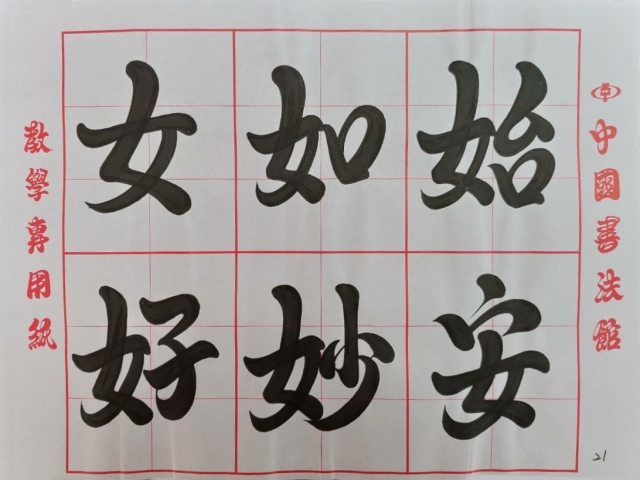 女如始
好妙安
中國書法館
教學專用紙
21